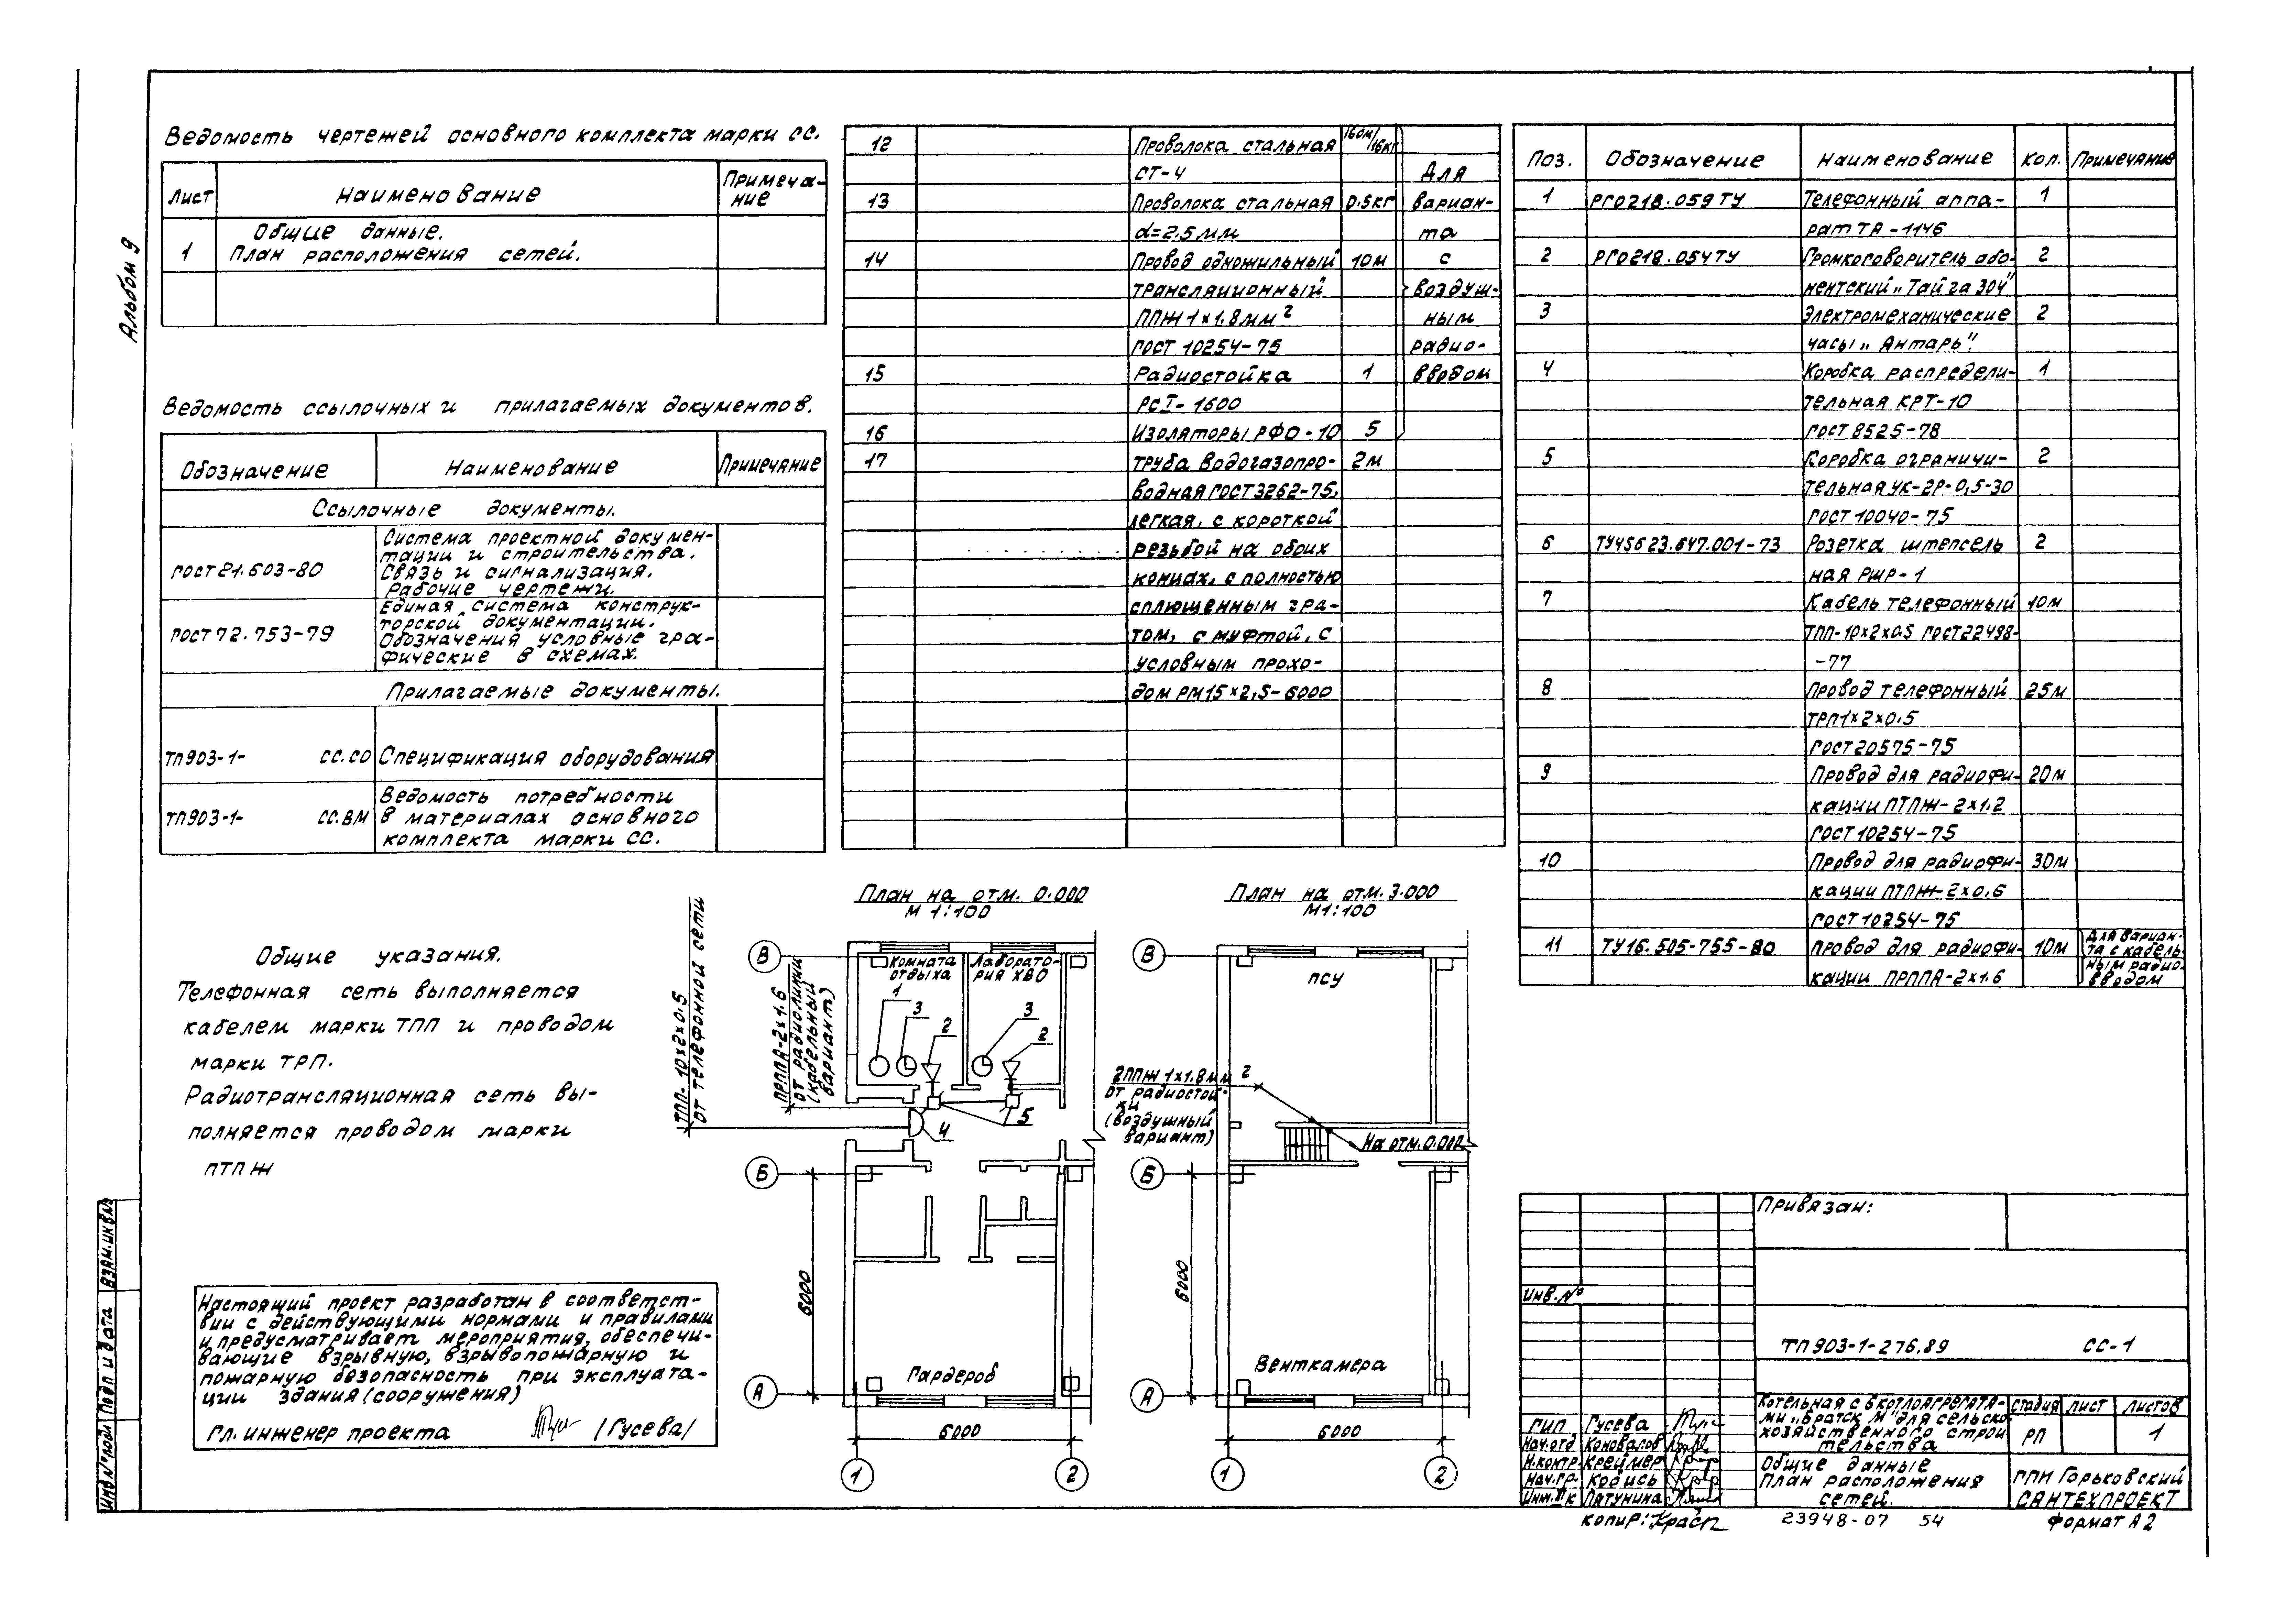 Альбом 9
Ведомость чертежей основного комплекта марки СС.
Лист Наименование Примеча-
ние
Общие данные.
1 План расположения сетей.
Ведомость ссылочных и прилагаемых документов.
Обозначение Наименование Примечание
Ссылочные документы.
ГОСТ 21.603-80 Система проектной докумен-
тации и строительства.
Связь и сигнализация.
Рабочие чертежи.
ГОСТ 72.753-79 Единая система конструк-
торской документации.
Обозначения условные гра-
фические в схемах.
Прилагаемые документы.
ТП903-1- СС.СО Спецификация оборудования
ТП903-1- СС.ВМ Ведомость потребности
в материалах основного
комплекта марки СС.
Общие указания.
Телефонная сеть выполняется
кабелем марки ТПП и проводом
марки ТРП.
Радиотрансляционная сеть вы-
полняется проводом марки
ПТПЖ
Настоящий проект разработан в соответст-
вии с действующими нормами и правилами
и предусматривает мероприятия, обеспечи-
вающие взрывную, взрывопожарную и
пожарную безопасность при эксплуата-
ции здания (сооружения)
Гл. инженер проекта /Гусева/
12 Проволока стальная 160м/16кг
СТ-4
13 Проволока стальная 0.5кг
d=2.5мм
14 Провод одножильный 10м
трансляционный
ППЖ 1×1.8мм²
ГОСТ 10254-75
15 Радиостойка 1
РСI-1600
16 Изоляторы РФО-10 5
Для
вариан-
та
с
воздуш-
ным
радио-
вводом
17 Труба водогазопро- 2м
водная ГОСТ 3262-75,
легкая, с короткой
резьбой на обоих
концах, с полностью
сплющенным гра-
том, с муфтой, с
условным прохо-
дом РМ15×2,5-6000
Поз. Обозначение Наименование Кол. Примечание
1 РГ0218.059ТУ Телефонный аппа- 1
рат ТА-1146
2 РГ0218.054ТУ Громкоговоритель або- 2
нентский „Тайга 304"
3 Электромеханические 2
часы „Янтарь".
4 Коробка распредели- 1
тельная КРТ-10
ГОСТ 8525-78
5 Коробка ограничи- 2
тельная УК-2Р-0,5-30
ГОСТ 10040-75
6 ТУ45623.647.001-73 Розетка штепсель 2
ная РШР-1
7 Кабель телефонный 10м
ТПП-10×2×0.5 ГОСТ 22498-
-77
8 Провод телефонный 25м
ТРП1×2×0.5
ГОСТ 20575-75
9 Провод для радиофи- 20м
кации ПТПЖ-2×1.2
ГОСТ 10254-75
10 Провод для радиофи- 30м
кации ПТПЖ-2×0.6
ГОСТ 10254-75
11 ТУ16.505-755-80 Провод для радиофи- 10м
кации ПРППА-2×1.6
Для вариан-
та с кабель-
ным радио-
вводом
План на отм. 0.000
М 1:100
В
Комната
отдыха
Лаборато-
рия ХВО
1
3
2
3
2
5
4
ТПП-10×2×0.5
от телефонной сети
ПРППА-2×1.6
от радиолинии
(кабельный
вариант)
Б
6000
Гардероб
А
6000
1 2
План на отм. 3.000
М1:100
В
ПСУ
2ППЖ 1×1.8мм²
от радиостой-
ки
(воздушный
вариант)
На отм. 0.000
Б
6000
Венткамера
А
6000
1 2
Привязан:
Инв. №
ТП903-1-276.89 СС-1
Котельная с 6 котлоагрегата-
ми „Братск М" для сельско
хозяйственного строи
тельства
стадия лист листов
РП 1
Общие данные
План расположения
сетей.
ГПИ Горьковский
САНТЕХПРОЕКТ
ГИП Гусева
Нач.отд Коновалов
Н.контр. Креймер
Нач.гр. Кодись
Инж.IIк Пятунина
Копир:
23948-07 54
Формат А2
Инв № подл Подп и дата Взам.инв№